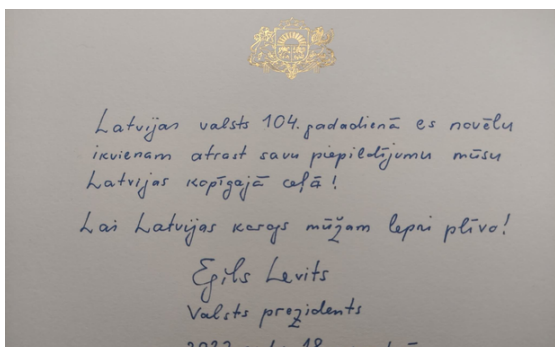 Latvijas valsts 104. gadadienā es novēlu
ikvienam atrast savu piepildījumu mūsu
Latvijas kopīgajā ceļā!
Lai Latvijas karogs mūžam lepni plīvo!
Egils Levits
Valsts prezidents